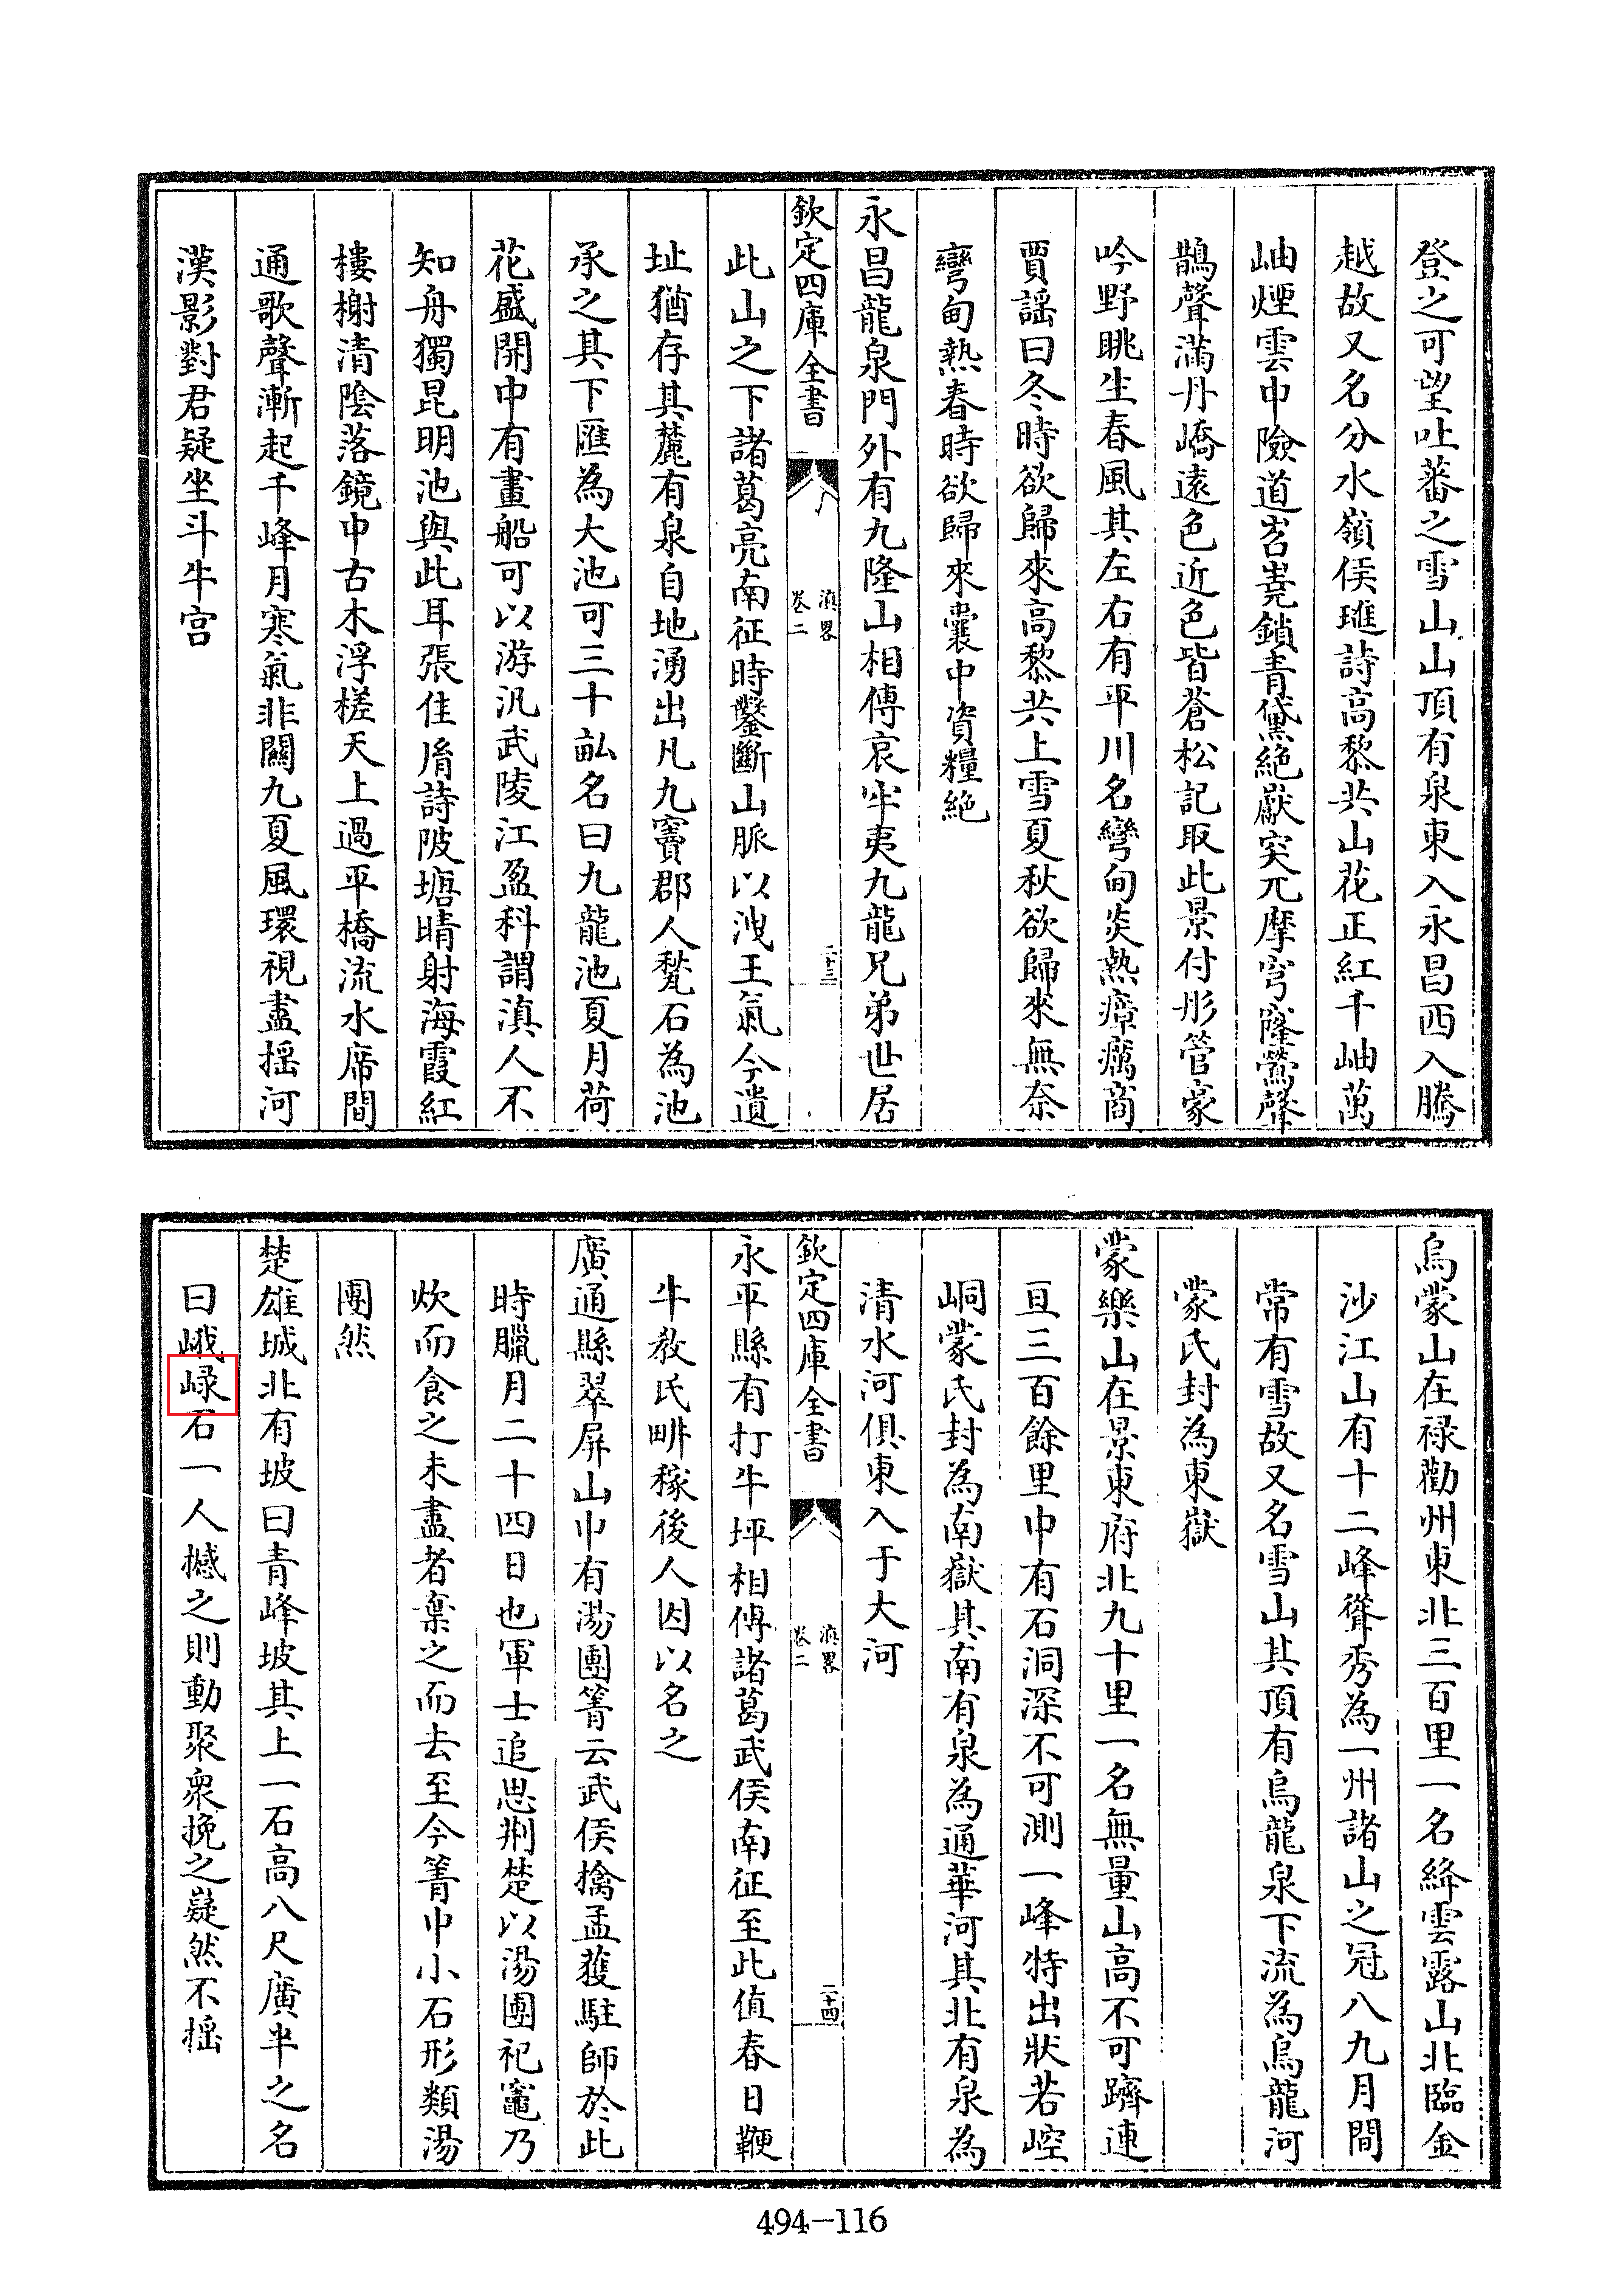 登之可望吐蕃之雪山山頂有泉東入永昌西入騰
越故又名分水嶺侯璡詩高黎共山花正紅千岫萬
岫煙雲中險道岧嶤鎖青黛絶巘突兀摩穹窿鶯聲
鵲聲滿丹嶠遠色近色皆蒼松記取此景付彤管豪
吟野眺生春風其左右有平川名彎甸炎熱瘴癘商
賈謡曰冬時欲歸來高黎共上雪夏秋欲歸來無奈
彎甸熱春時欲歸來囊中資糧絶
永昌龍泉門外有九隆山相傳哀牢夷九龍兄弟世居
欽定四庫全書
滇畧
卷二
二十三
此山之下諸葛亮南征時鑿斷山脈以洩王氣今遺
址猶存其麓有泉自地湧出凡九竇郡人甃石為池
承之其下匯為大池可三十畆名曰九龍池夏月荷
花盛開中有畫船可以游汎武陵江盈科謂滇人不
知舟獨昆明池與此耳張佳胤詩陂塘晴射海霞紅
樓榭清陰落鏡中古木浮槎天上過平橋流水席間
通歌聲漸起千峰月寒氣非闗九夏風環視盡揺河
漢影對君疑坐斗牛宫
烏蒙山在禄勸州東北三百里一名絳雲露山北臨金
沙江山有十二峰聳秀為一州諸山之冠八九月間
常有雪故又名雪山其頂有烏龍泉下流為烏龍河
蒙氏封為東嶽
蒙樂山在景東府北九十里一名無量山高不可躋連
亘三百餘里中有石洞深不可測一峰特出狀若崆
峒蒙氏封為南嶽其南有泉為通華河其北有泉為
清水河俱東入于大河
欽定四庫全書
滇畧
卷二
二十四
永平縣有打牛坪相傳諸葛武侯南征至此值春日鞭
牛教氏畊稼後人因以名之
廣通縣翠屏山中有湯團箐云武侯擒孟獲駐師於此
時臘月二十四日也軍士追思荆楚以湯團祀竈乃
炊而食之未盡者棄之而去至今箐中小石形類湯
團然
楚雄城北有坡曰青峰坡其上一石高八尺廣半之名
曰峨㟤石一人撼之則動聚衆挽之嶷然不揺
494-116